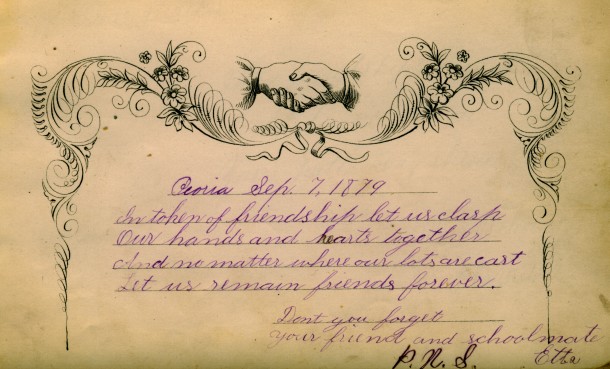 Peoria Sep. 7, 1879
In token of friendship let us clasp
Our hands and hearts together
And no matter where our lots are cast
Let us remain friends forever.
Dont you forget
your friend and schoolmate
Etta
P. N. S.